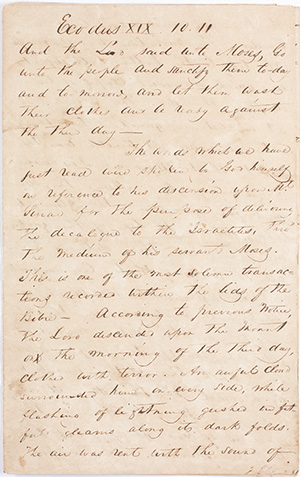 Exodus XIX 10. 11
And the Lord said unto Moses, Go
unto the people and sanctify them to-day
and to-morrow, and let them wash
their clothes and be ready against
the third day —
The words which we have
just read were spoken by God himself
in reference to his descension upon Mt
Sinai for the purpose of delivering
the decalogue to the Israelites, thro'
the medium of his servant Moses.
This is one of the most solemn transac
tions recorded within the lids of the
Bible — According to previous notice,
the Lord descended upon the Mount
on the morning of the third day,
clothed with terror. An awful cloud
surrounded him on every side, while
flashing of lightning gushed in fit-
ful gleams along its dark folds.
The air was rent with the sound of